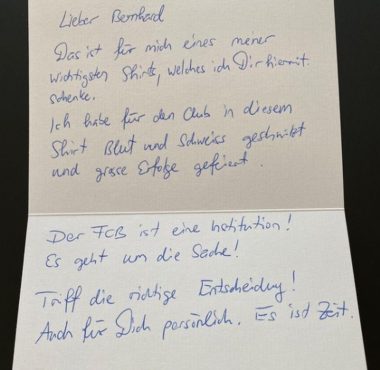 Lieber Bernhard
Das ist für mich eines meiner
wichtigsten Shirts, welches ich Dir hiermit
schenke.
Ich habe für den Club in diesem
Shirt Blut und Schweiss geschwitzt
und grosse Erfolge gefeiert.
Der FCB ist eine Institution!
Es geht um die Sache!
Triff die richtige Entscheidung!
Auch für Dich persönlich. Es ist Zeit.